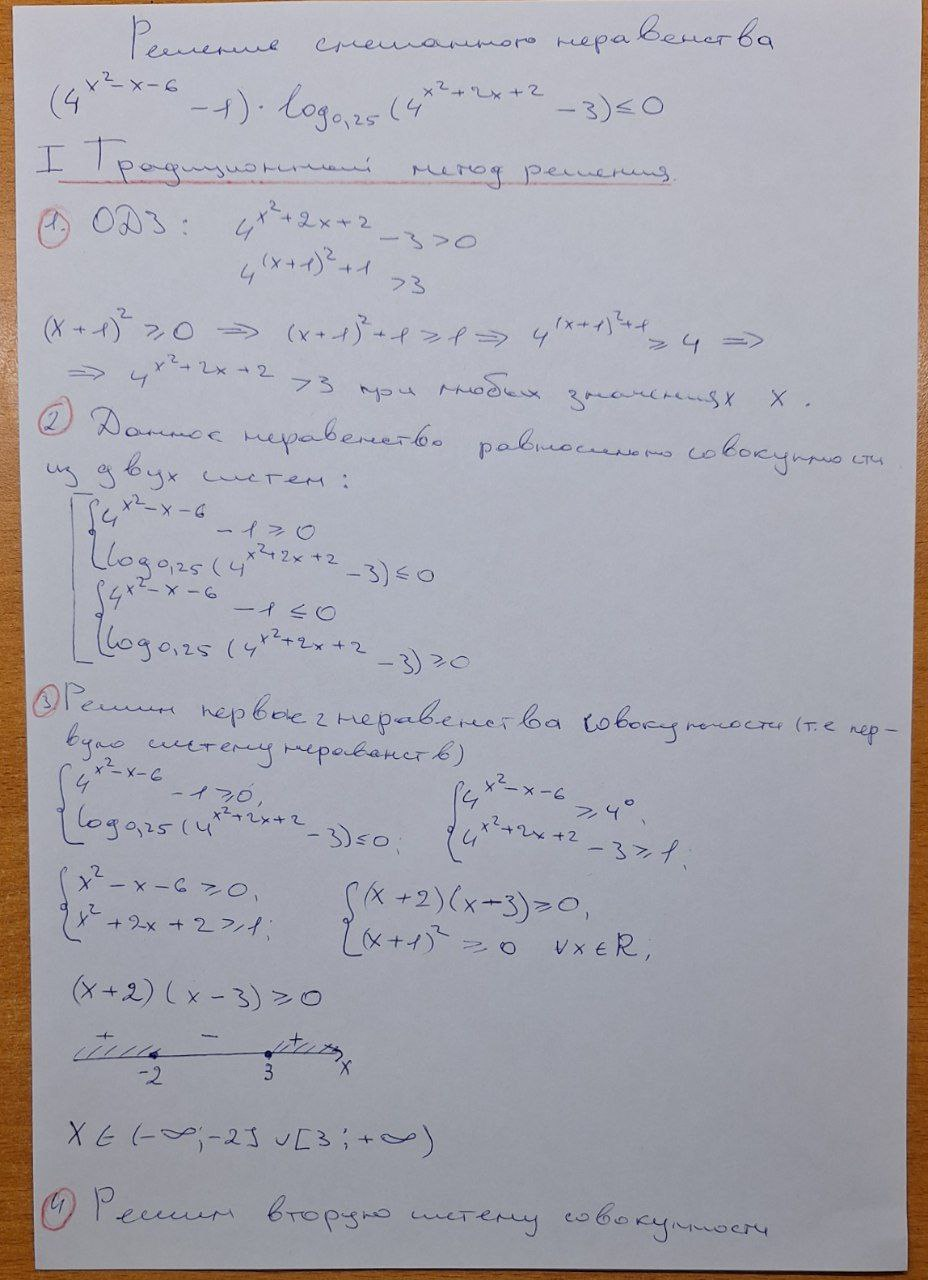 Решение смешанного неравенства
(4^{x²-x-6} - 1) · log_{0,25} (4^{x²+2x+2} - 3) ≤ 0
I Традиционный метод решения.
1. ОДЗ: 4^{x²+2x+2} - 3 > 0
4^{(x+1)²+1} > 3
(x+1)² ≥ 0 ⇒ (x+1)²+1 ≥ 1 ⇒ 4^{(x+1)²+1} ≥ 4 ⇒
⇒ 4^{x²+2x+2} > 3 при любых значениях x.
2 Данное неравенство равносильно совокупности
из двух систем:
[ { 4^{x²-x-6} - 1 ≥ 0
log_{0,25} (4^{x²+2x+2} - 3) ≤ 0
{ 4^{x²-x-6} - 1 ≤ 0
log_{0,25} (4^{x²+2x+2} - 3) ≥ 0
3 Решим первые 2 неравенства совокупности (т.е пер-
вую систему неравенств)
{ 4^{x²-x-6} - 1 ≥ 0, { 4^{x²-x-6} ≥ 4⁰,
log_{0,25} (4^{x²+2x+2} - 3) ≤ 0; 4^{x²+2x+2} - 3 ≥ 1;
{ x² - x - 6 ≥ 0, { (x+2)(x-3) ≥ 0,
x² + 2x + 2 ≥ 1; (x+1)² ≥ 0 ∀x ∈ R;
(x+2)(x-3) ≥ 0
+ - +
-2 3 x
X ∈ (-∞; -2] ∪ [3; +∞)
4 Решим вторую систему совокупности